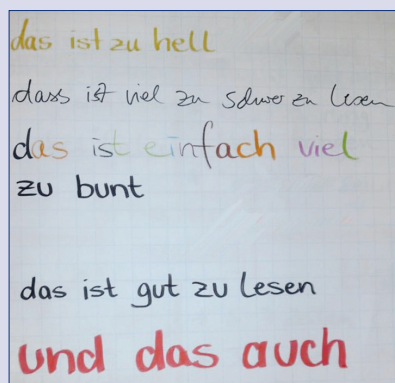 das ist zu hell
dass ist viel zu schwer zu lesen
das ist einfach viel
zu bunt
das ist gut zu lesen
und das auch